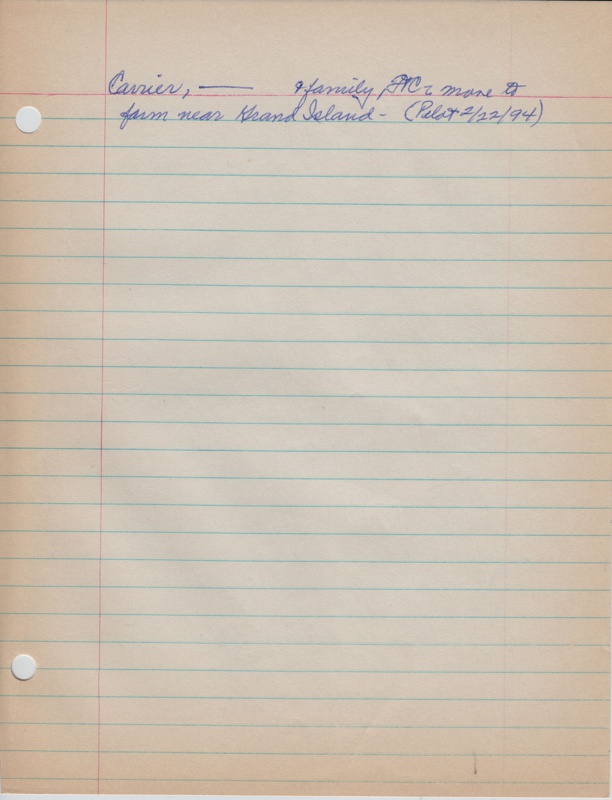 Carrier, —— & family, FtC - move to
farm near Grand Island - (Pilot 2/22/94)